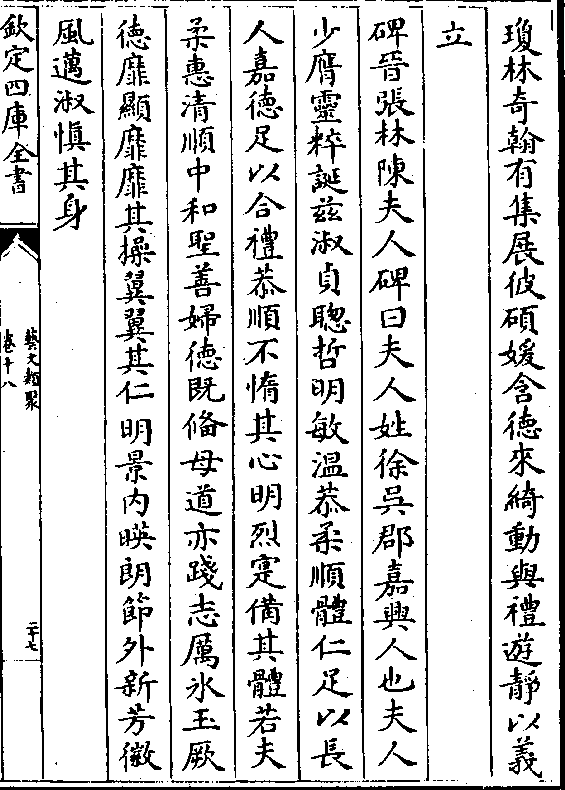 瓊林奇翰有集展彼碩媛含徳來綺動與禮遊靜以義
立
碑晉張林陳夫人碑曰夫人姓徐吳郡嘉興人也夫人
少膺靈粹誕兹淑貞聰哲明敏溫恭柔順體仁足以長
人嘉徳足以合禮恭順不惰其心明烈寔備其體若夫
柔惠清順中和聖善婦徳既脩母道亦踐志厲氷玉厥
徳靡顯靡靡其操翼翼其仁明景内暎朗節外新芳徽
風邁淑慎其身
欽定四庫全書
藝文類聚
卷十八
二十七